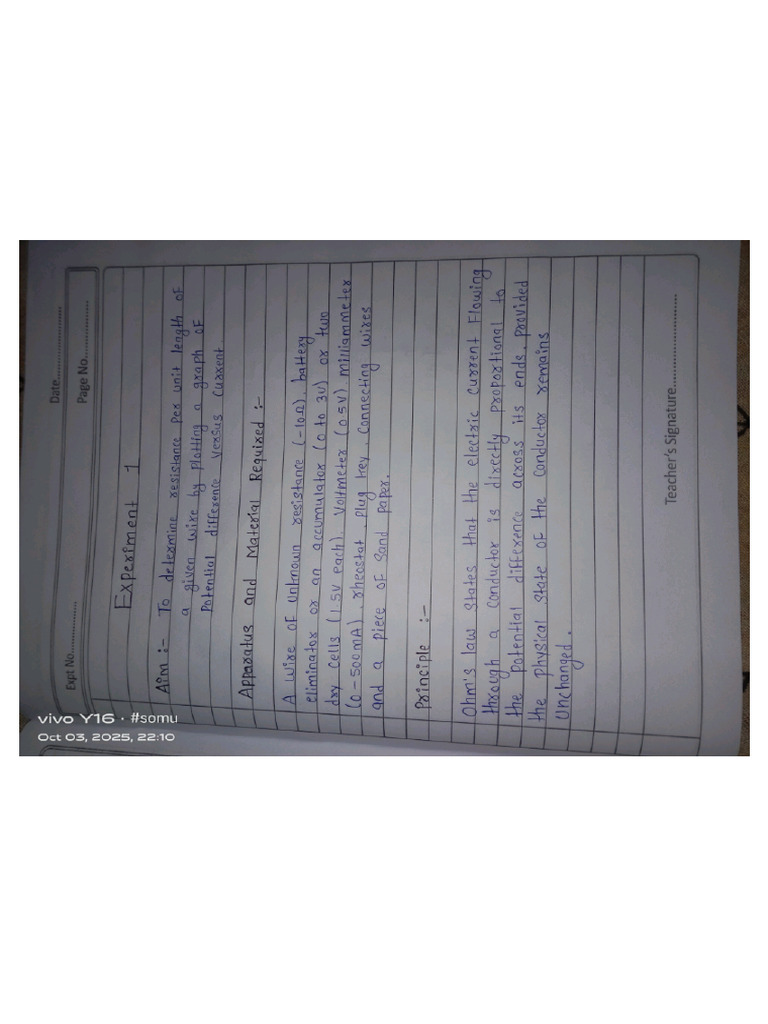 Date....................
Page No....................
Expt No....................
Experiment 1
Aim :- To determine resistance Per unit length of
a given wire by plotting a graph of
Potential difference versus Current
Apparatus and Material Required :-
A wire of unknown resistance (~10Ω), battery
eliminator or an accumulator (0 to 3V) or two
dry cells (1.5V each), Voltmeter (0.5V), milliammeter
(0-500mA), rheostat, plug key, Connecting wires
and a piece of Sand Paper.
Principle :-
Ohm's law states that the electric Current Flowing
through a conductor is directly proportional to
the potential difference across its ends, Provided
the physical State of the Conductor remains
Unchanged.
Teacher's Signature....................
vivo Y16 · #somu
Oct 03, 2025, 22:10